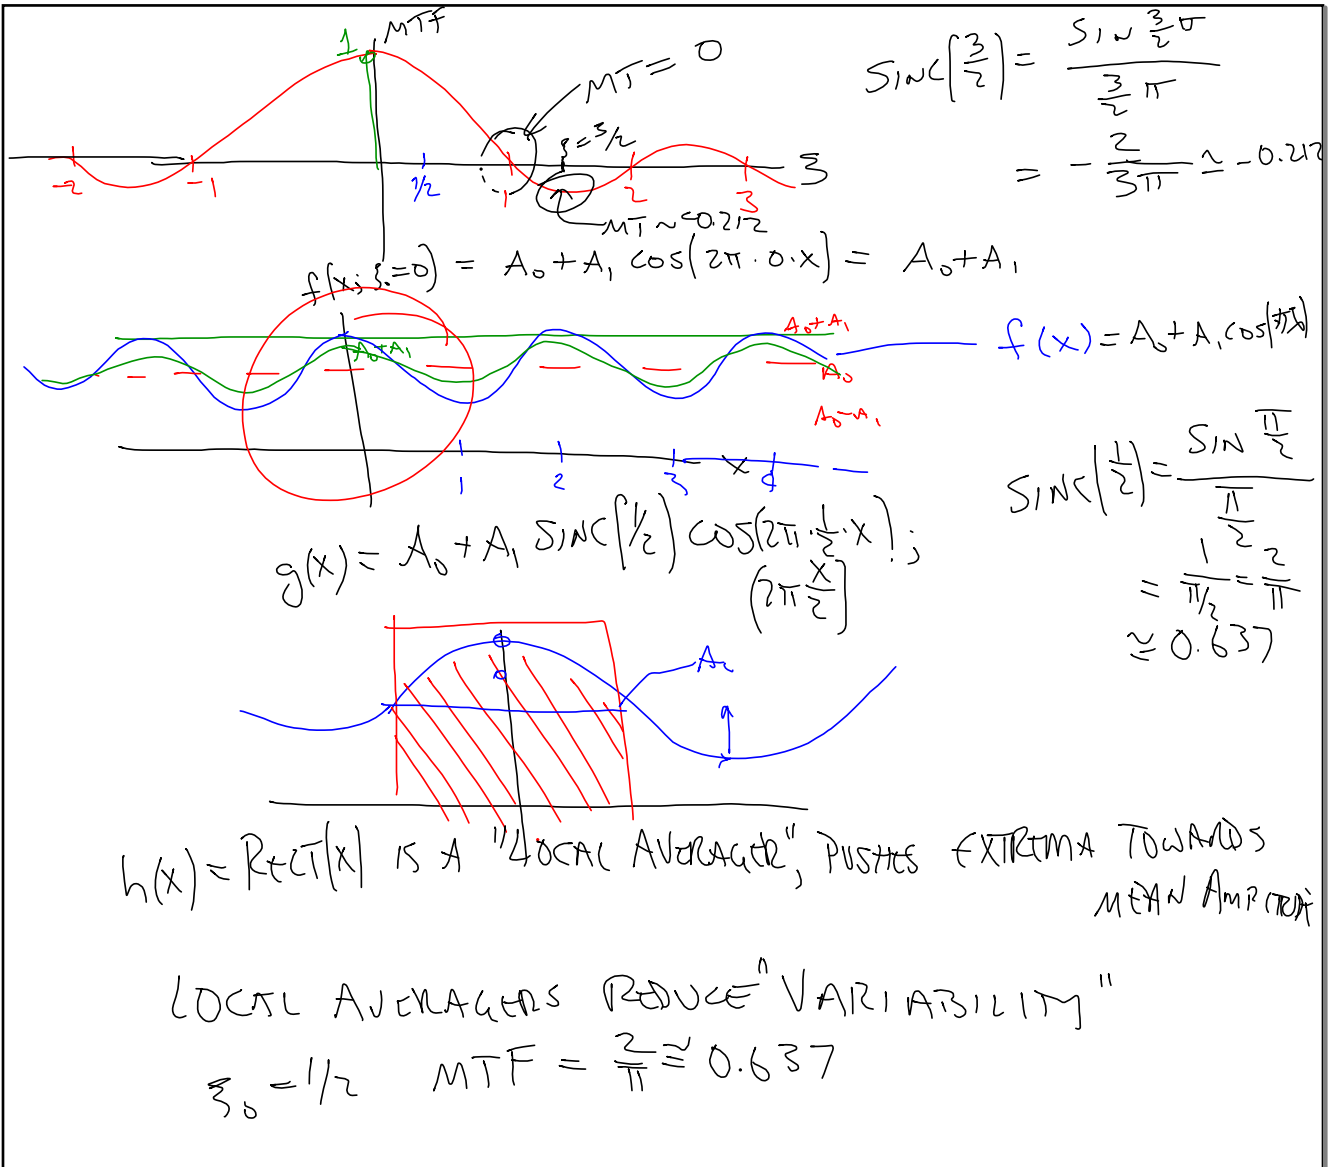 MTF
1
MT = 0
SINC(3/2) = SIN 3/2 π / 3/2 π
= -2/3π ≃ -0.212
ξ = 3/2
-2 -1 1/2 1 2 3 ξ
MT ~ -0.212
f(x; ξ₀=0) = A₀ + A₁ COS(2π·0·x) = A₀ + A₁
A₀+A₁
A₀+A₁
f(x) = A₀ + A₁ COS(
A₀
A₀-A₁
1 2 3 x 4
SINC(1/2) = SIN π/2 / π/2
= 1/π/2 = 2/π
≃ 0.637
g(x) = A₀ + A₁ SINC(1/2) COS(2π·1/2·x);
(2π x/2)
h(x) = RECT(x) IS A "LOCAL AVERAGER", PUSHES EXTREMA TOWARDS
MEAN AMPLITUDE
LOCAL AVERAGERS REDUCE "VARIABILITY"
ξ₀ = 1/2 MTF = 2/π ≅ 0.637